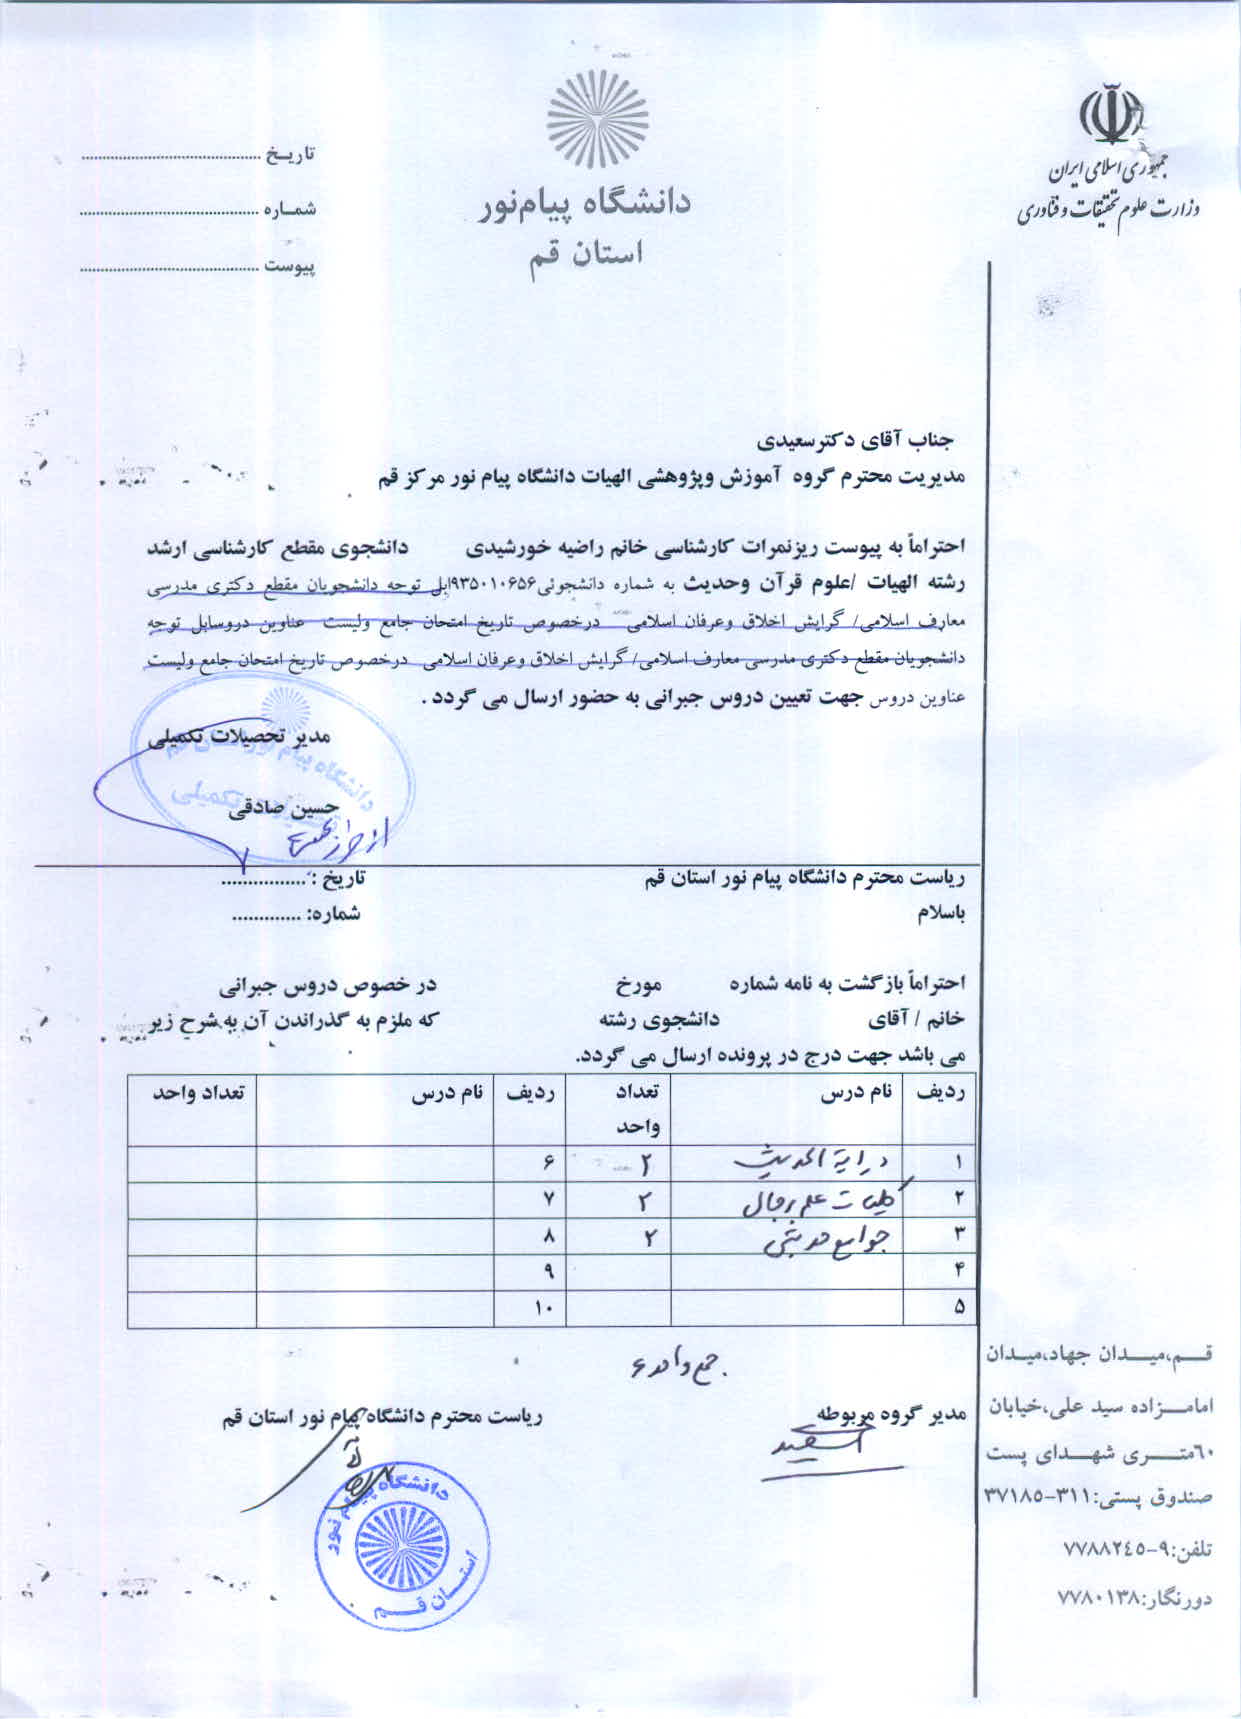 جمهوری اسلامی ایران
وزارت علوم تحقیقات و فناوری
دانشگاه پیام‌نور
استان قم
تاریخ ........................................
شماره ........................................
پیوست ........................................
جناب آقای دکترسعیدی
مدیریت محترم گروه آموزش وپژوهشی الهیات دانشگاه پیام نور مرکز قم
احتراماً به پیوست ریزنمرات کارشناسی خانم راضیه خورشیدی دانشجوی مقطع کارشناسی ارشد
رشته الهیات /علوم قرآن وحدیث به شماره دانشجوئی۹۳۵۰۱۰۶۵۶ابل توجه دانشجویان مقطع دکتری مدرسی
معارف اسلامی/ گرایش اخلاق وعرفان اسلامی درخصوص تاریخ امتحان جامع ولیست عناوین دروسابل توجه
دانشجویان مقطع دکتری مدرسی معارف اسلامی/ گرایش اخلاق وعرفان اسلامی درخصوص تاریخ امتحان جامع ولیست
عناوین دروس جهت تعیین دروس جبرانی به حضور ارسال می گردد .
مدیر تحصیلات تکمیلی
حسین صادقی
از طرف
دانشگاه پیام نور استان قم
تکمیلی
ریاست محترم دانشگاه پیام نور استان قم
تاریخ : ................
باسلام
شماره: .............
احتراماً بازگشت به نامه شماره مورخ در خصوص دروس جبرانی
خانم / آقای دانشجوی رشته که ملزم به گذراندن آن به شرح زیر
می باشد جهت درج در پرونده ارسال می گردد.
ردیف نام درس تعداد واحد ردیف نام درس تعداد واحد
۱ درایة الحدیث ۲ ۶
۲ کلیات علم رجال ۲ ۷
۳ جوامع حدیثی ۲ ۸
۴ ۹
۵ ۱۰
جمع واحد ۶
مدیر گروه مربوطه
ریاست محترم دانشگاه پیام نور استان قم
دانشگاه پیام نور
استان قم
قم،میدان جهاد،میدان
امامزاده سید علی،خیابان
٦٠متری شهدای پست
صندوق پستی:۳۱۱-۳۷۱۸۵
تلفن:۹-۷۷۸۸۲٤۵
دورنگار:۷۷۸۰۱۳۸